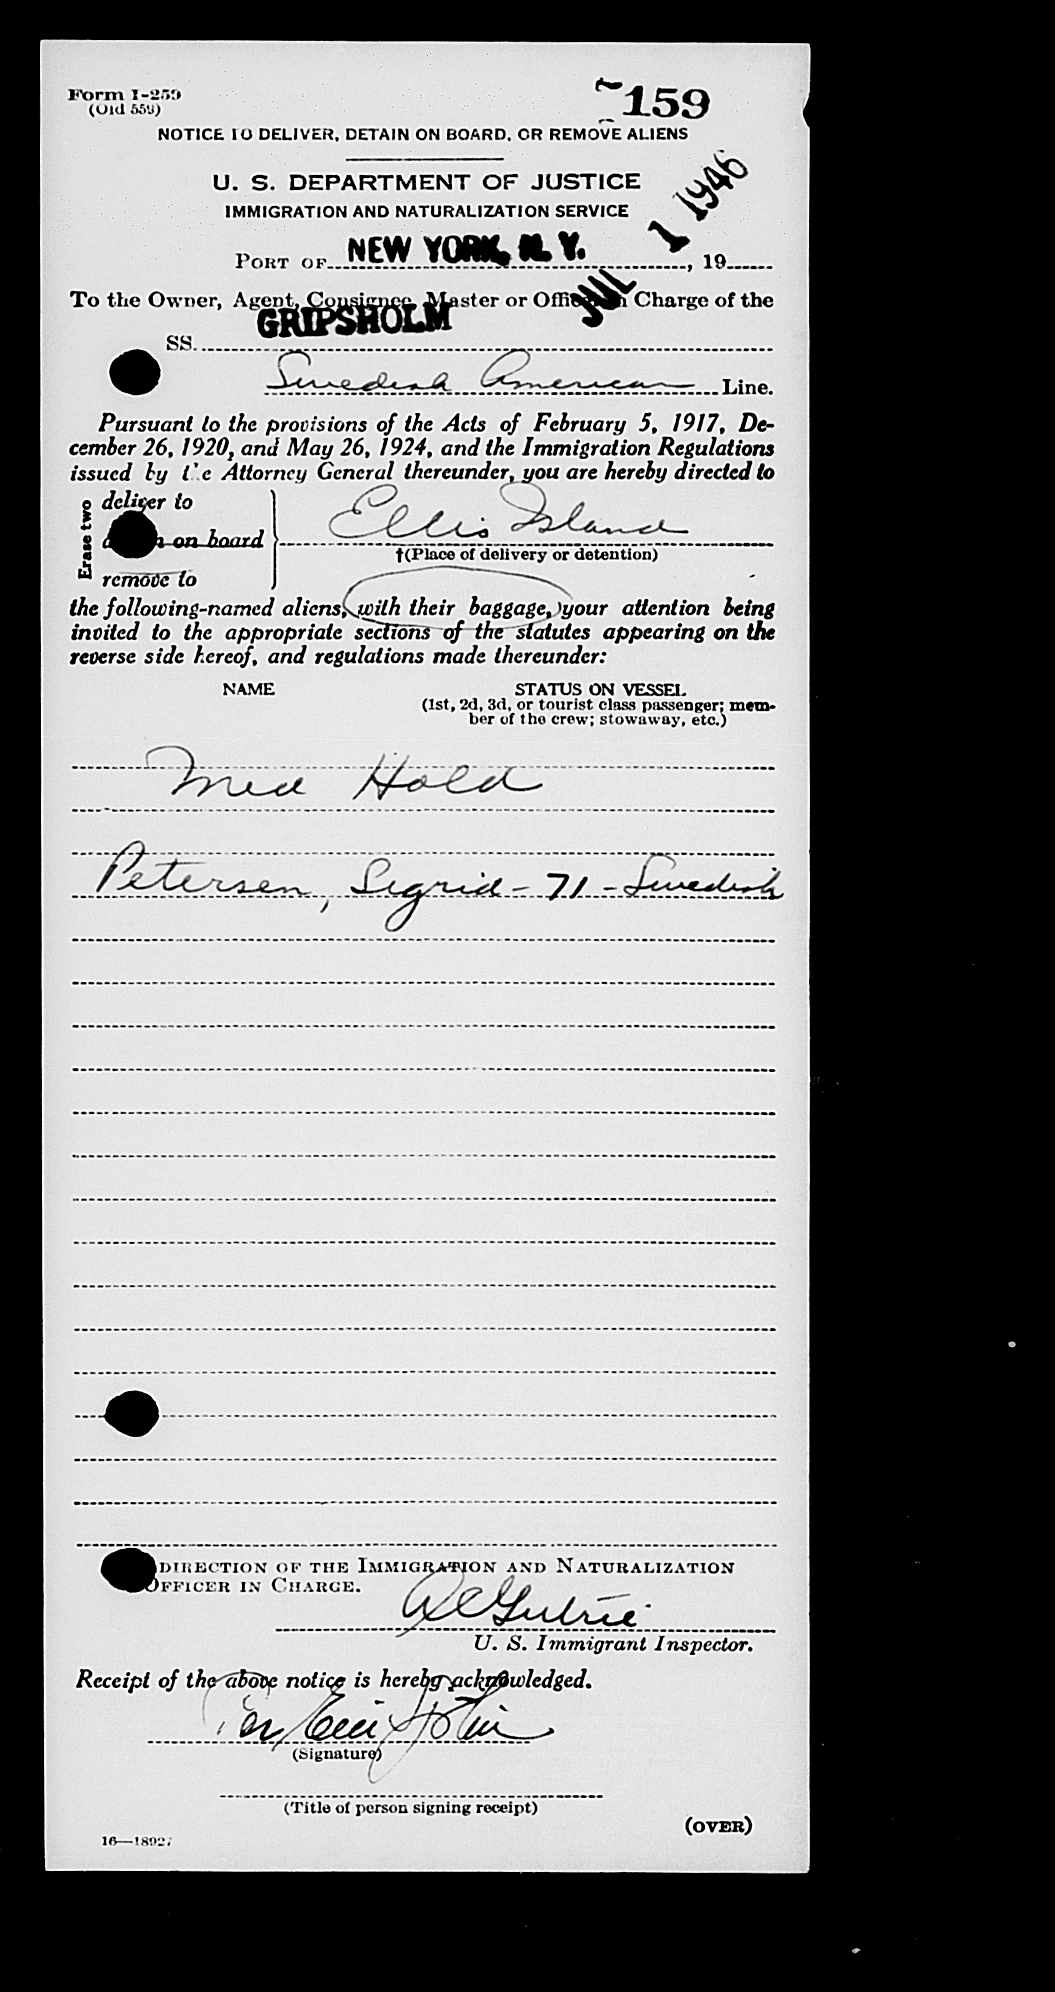 Form I-259
(Old 559)
159
NOTICE TO DELIVER, DETAIN ON BOARD, OR REMOVE ALIENS
U. S. DEPARTMENT OF JUSTICE
IMMIGRATION AND NATURALIZATION SERVICE
JUL 1 1946
PORT OF NEW YORK, N. Y. , 19
To the Owner, Agent, Consignee, Master or Officer in Charge of the
SS. GRIPSHOLM
Swedish American Line.
Pursuant to the provisions of the Acts of February 5, 1917, De-
cember 26, 1920, and May 26, 1924, and the Immigration Regulations
issued by the Attorney General thereunder, you are hereby directed to
Erase two
deliver to
on board
remove to
Ellis Island
†(Place of delivery or detention)
the following-named aliens, with their baggage, your attention being
invited to the appropriate sections of the statutes appearing on the
reverse side hereof, and regulations made thereunder:
NAME STATUS ON VESSEL
(1st, 2d, 3d, or tourist class passenger; mem-
ber of the crew; stowaway, etc.)
Med Hold
Petersen, Sigrid - 71 - Swedish
DIRECTION OF THE IMMIGRATION AND NATURALIZATION
OFFICER IN CHARGE.
U. S. Immigrant Inspector.
Receipt of the above notice is hereby acknowledged.
(Signature)
(Title of person signing receipt)
(OVER)
16—18927